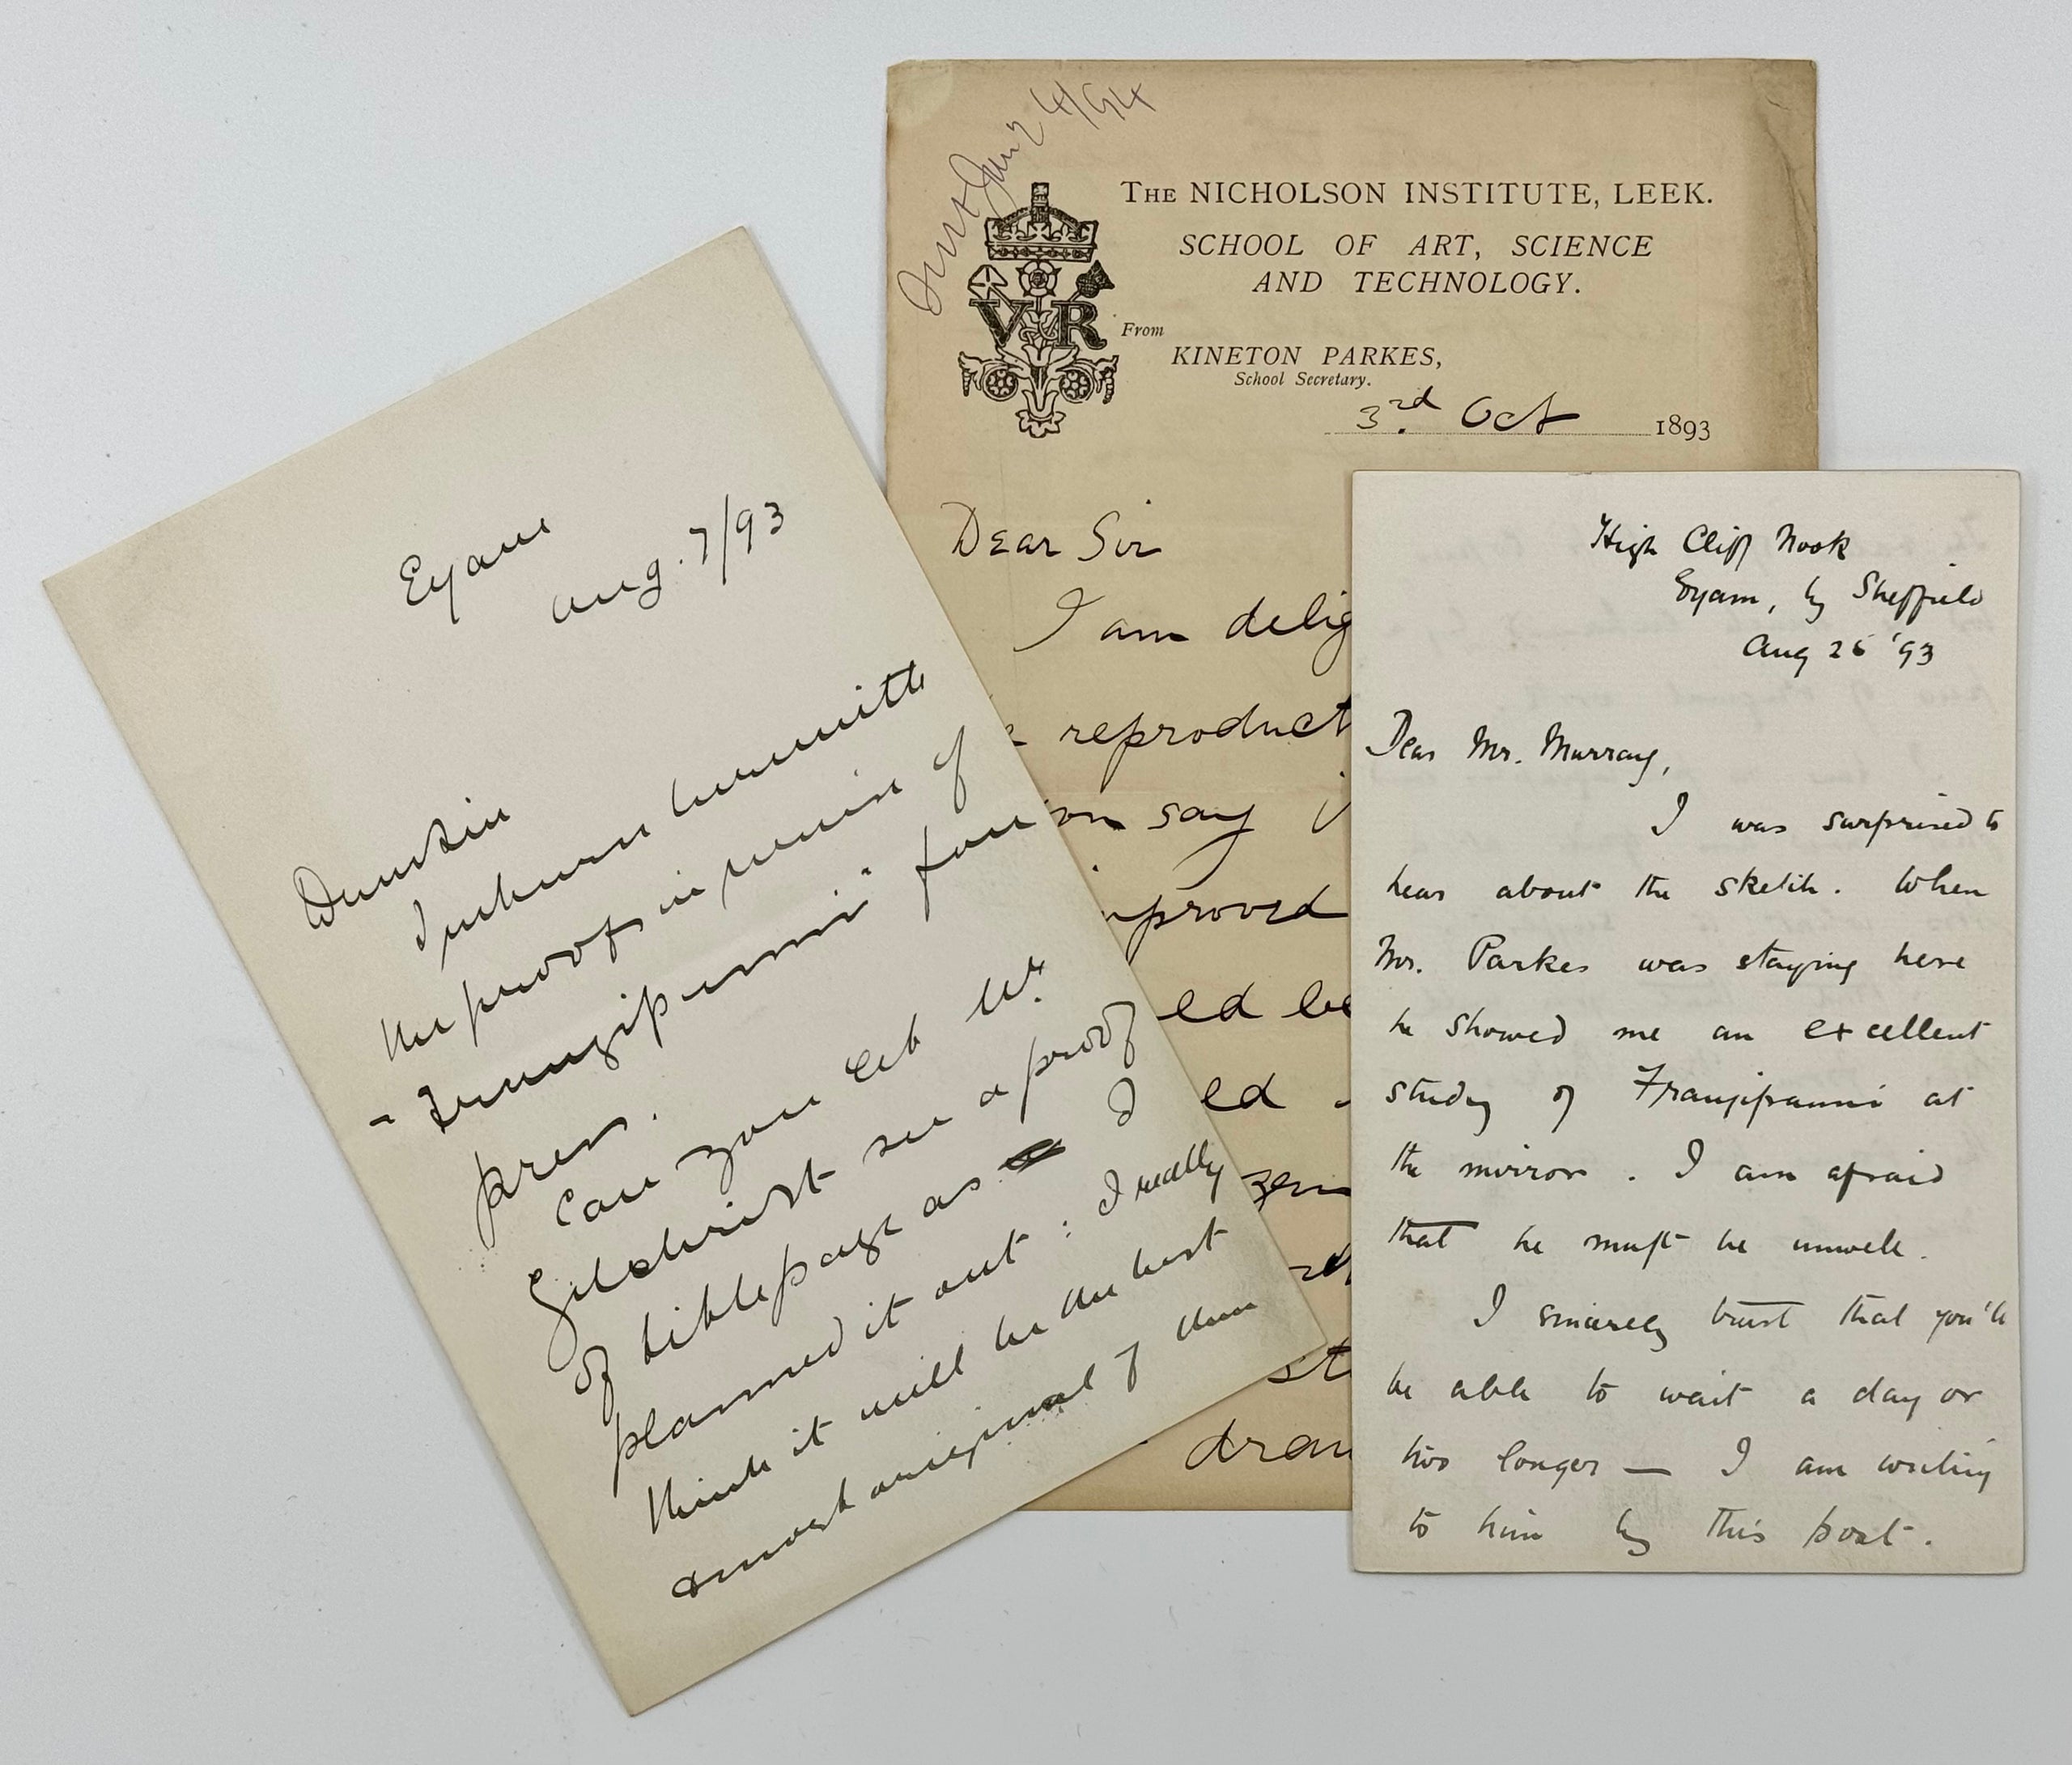 Eyam
Aug. 7/93
Dear Sir
I return herewith
the proofs in
Frangipanni
press.
Can you let Mr.
Gilchrist see a proof
of titlepage as I
planned it out: I really
think it will be the best
& most original of them
Jan 24/94
THE NICHOLSON INSTITUTE, LEEK.
SCHOOL OF ART, SCIENCE
AND TECHNOLOGY.
VR
From
KINETON PARKES,
School Secretary.
3rd. Oct 1893
Dear Sir
I am delig
reproduct
say
proved
ed be
ed
st
draw
High Cliff Nook
Eyam, by Sheffield
Aug 26 '93
Dear Mr. Murray,
I was surprised to
hear about the sketch. When
Mr. Parkes was staying here
he showed me an excellent
study of Frangipanni at
the mirror. I am afraid
that he must be unwell.
I sincerely trust that you'll
be able to wait a day or
two longer — I am writing
to him by this post.